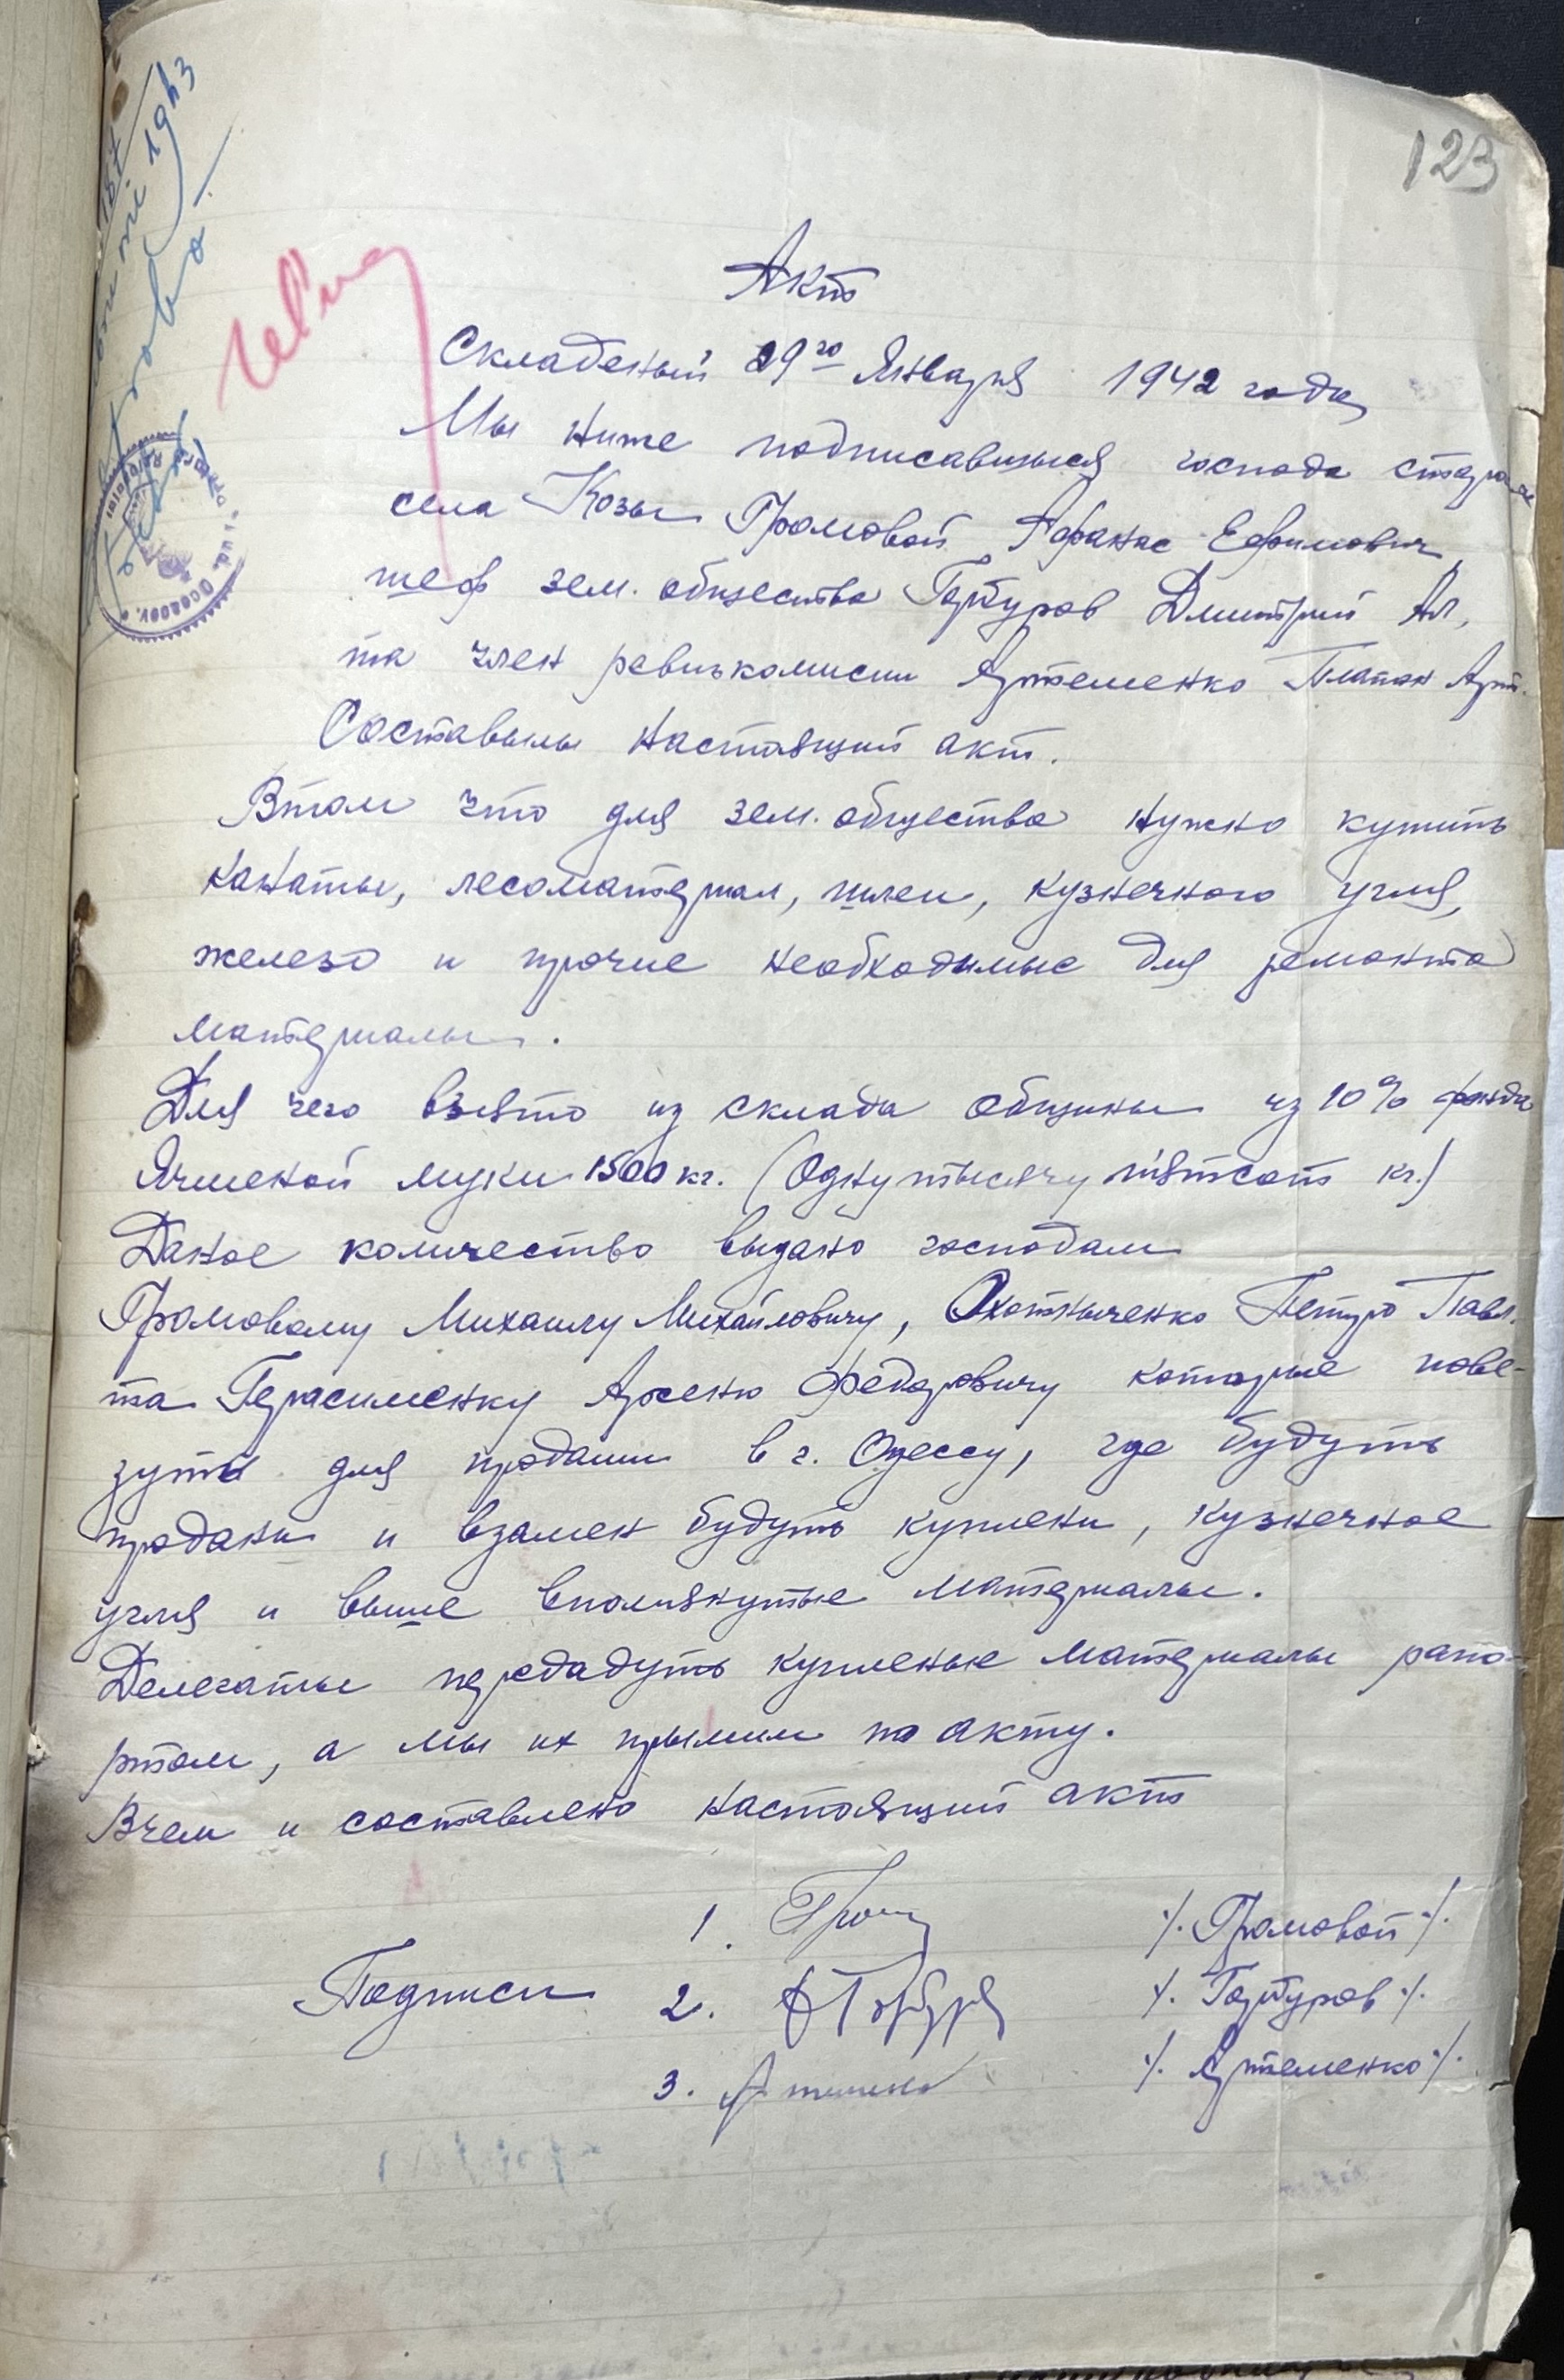 123
1943
Акт
Складеный 29го Января 1942 года
Мы ниже подписавшыеся господа
села Козы Громовой Афанас Ефимович
шеф зем. общества Гортуров Дмитрий Ал,
та член ревизкомисии Артеменко Платон Арт.
Составылы настоящий акт.
Втом что для зем. общества нужно купить
канаты, лесоматериал, шлеи, кузнечного угля,
железо и прочие необходымые для ремонта
материалы.
Для чего взято из склада общины из 10% фонда
Ячменой муки 1500 кг. (Одну тысячу пятсот кг.)
Даное количество выдано господам
Громовому Михаилу Михайловичу, Охотныченко Петру Павл.
та Герасименку Арсеню Федоровичу которые пове-
зуть для продажи в г. Одессу, где будуть
проданы и взамен будуть куплены, кузнечное
угля и выше вполянутые материалы.
Делегаты передадуть купленые материалы рапо-
ртом, а мы их прымим по акту.
Вчем и составлено настоящий акт
Подписи
1. ٪ Громовой ٪
2. ٪ Гортуров ٪
3. ٪ Артеменко ٪